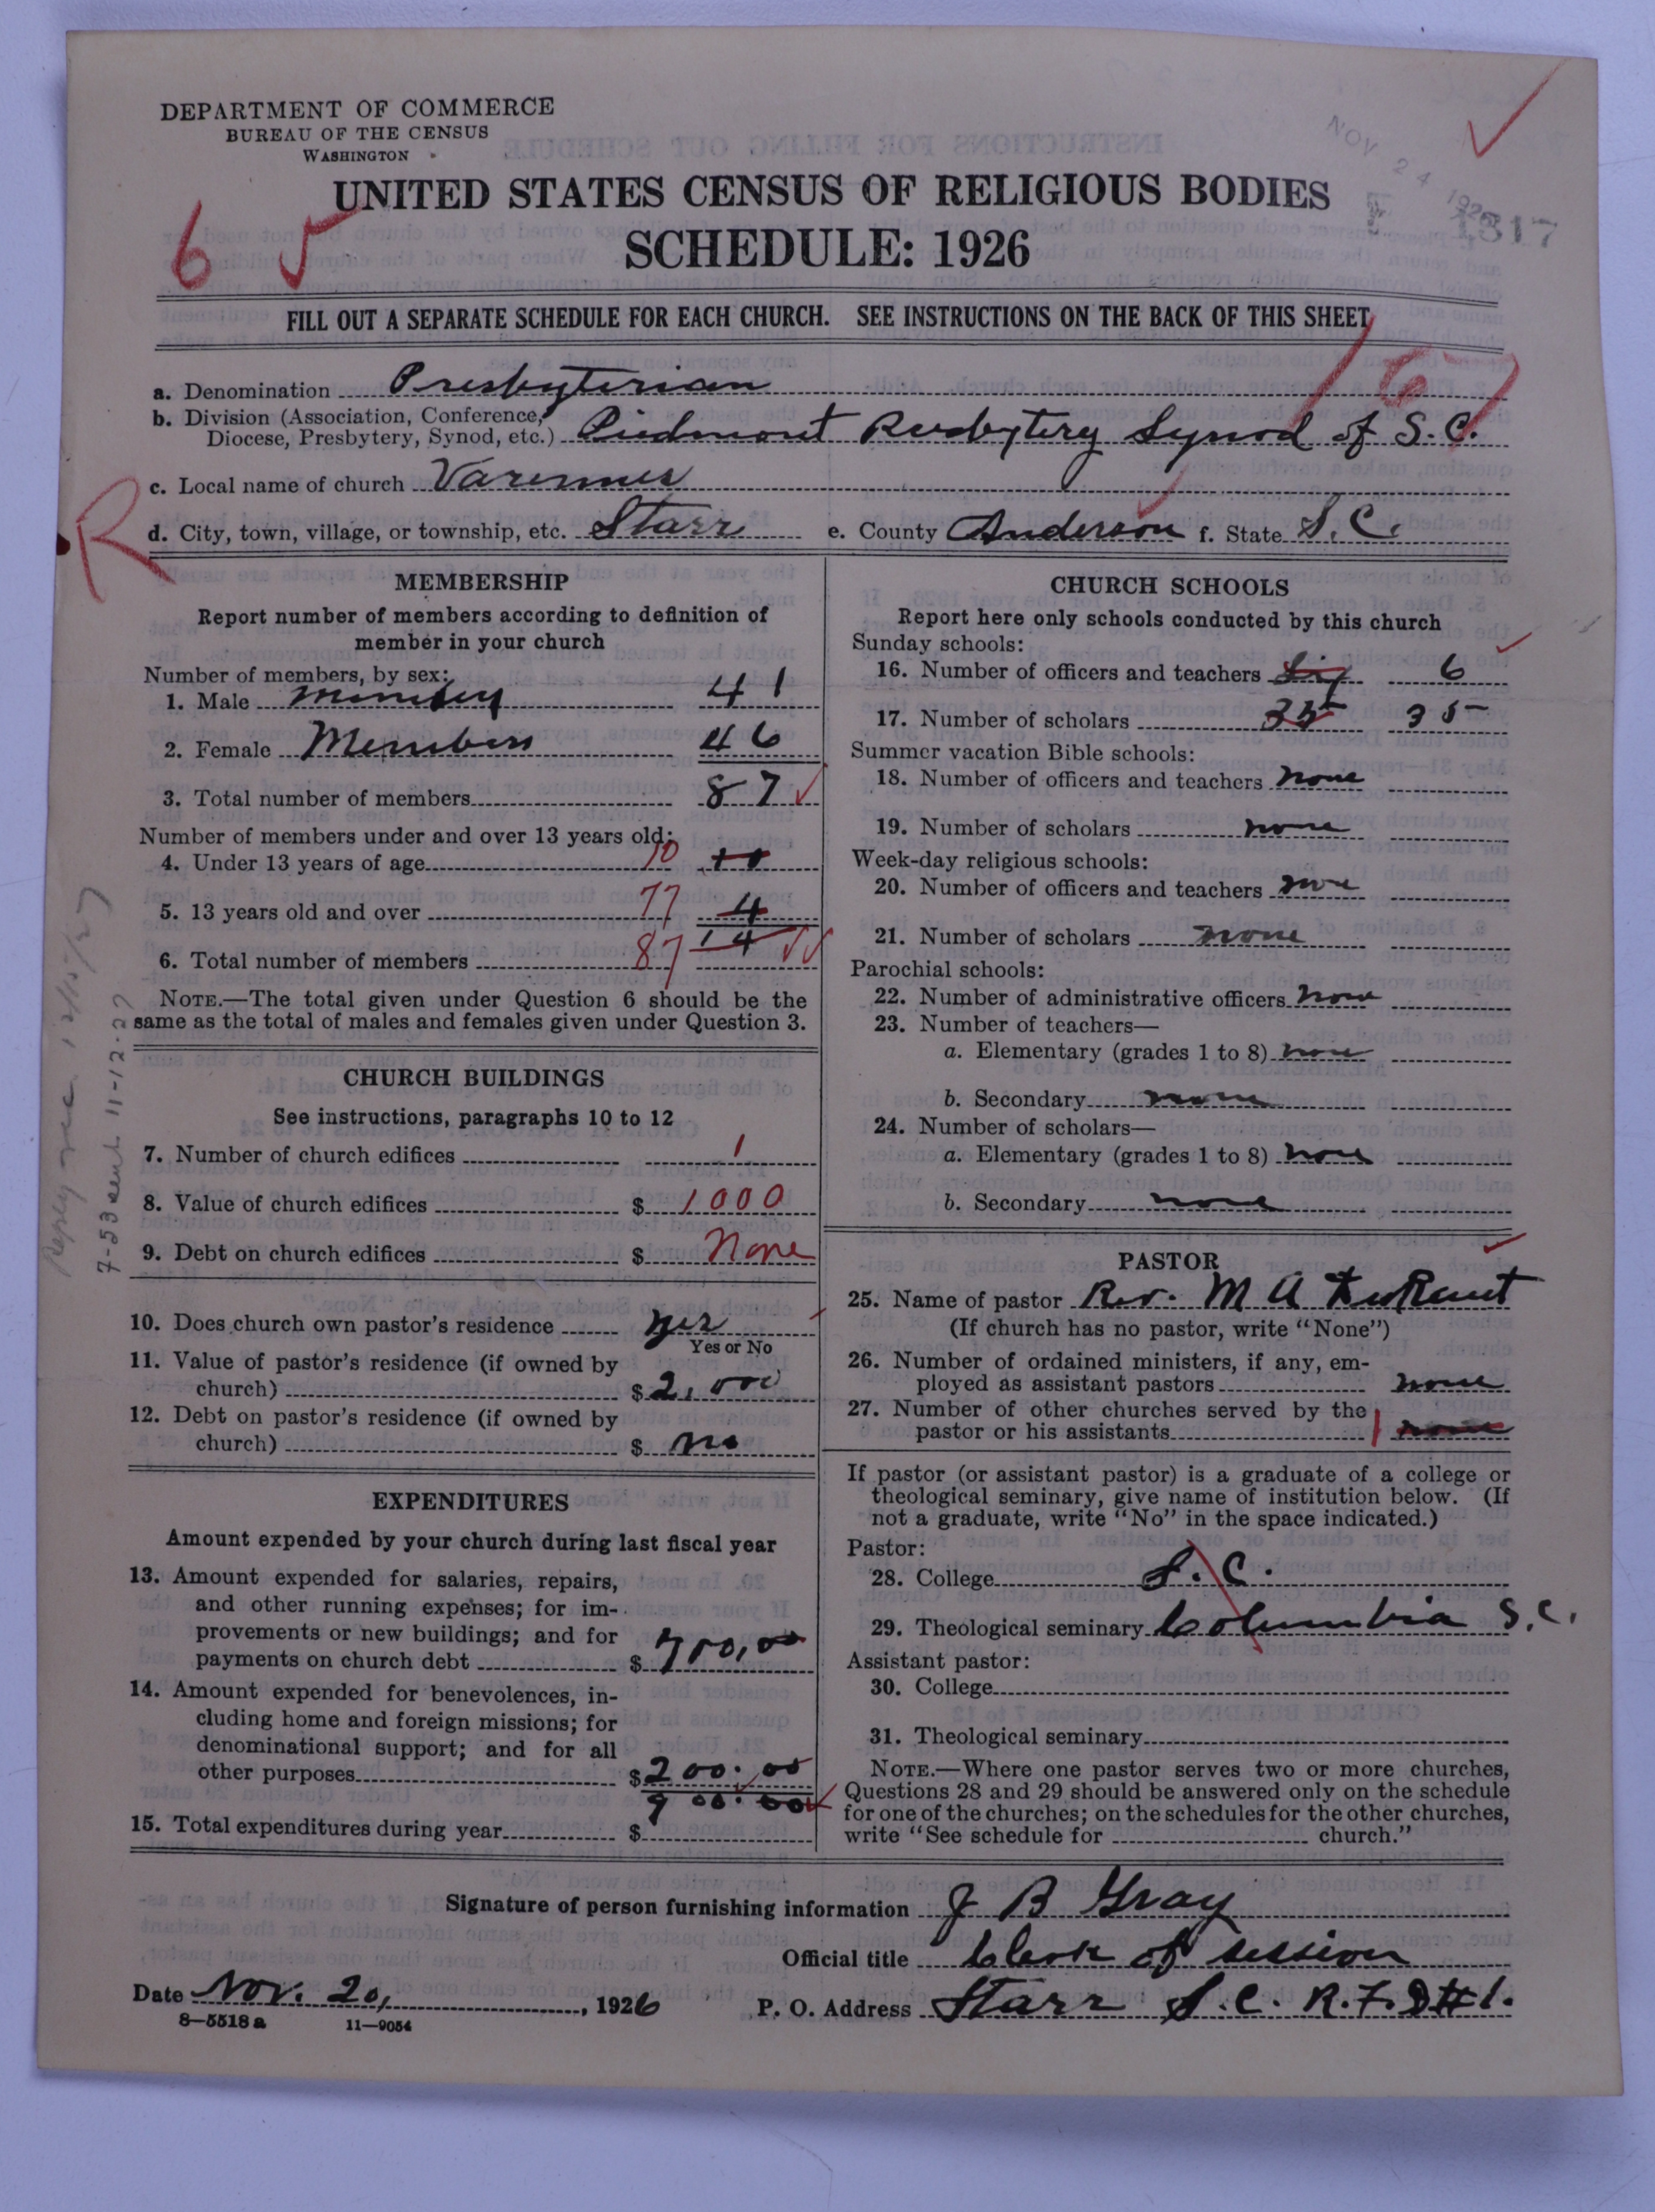 DEPARTMENT OF COMMERCE
BUREAU OF THE CENSUS
WASHINGTON
NOV 24 1926
1317
UNITED STATES CENSUS OF RELIGIOUS BODIES
6 5
SCHEDULE: 1926
FILL OUT A SEPARATE SCHEDULE FOR EACH CHURCH. SEE INSTRUCTIONS ON THE BACK OF THIS SHEET
a. Denomination Presbyterian
b. Division (Association, Conference,
Diocese, Presbytery, Synod, etc.) Piedmont Presbytery Synod of S.C.
c. Local name of church Varennes
R
d. City, town, village, or township, etc. Starr e. County Anderson f. State S.C.
MEMBERSHIP
Report number of members according to definition of
member in your church
Number of members, by sex:
1. Male 41
2. Female Members 46
3. Total number of members 87
Number of members under and over 13 years old:
4. Under 13 years of age 10 10
5. 13 years old and over 77 4
6. Total number of members 87 14
NOTE.—The total given under Question 6 should be the
same as the total of males and females given under Question 3.
7-53 sent 11-12-27
CHURCH BUILDINGS
See instructions, paragraphs 10 to 12
7. Number of church edifices 1
8. Value of church edifices $ 1000
9. Debt on church edifices $ None
10. Does church own pastor's residence yes
Yes or No
11. Value of pastor's residence (if owned by
church) $ 2,000
12. Debt on pastor's residence (if owned by
church) $ no
EXPENDITURES
Amount expended by your church during last fiscal year
13. Amount expended for salaries, repairs,
and other running expenses; for im-
provements or new buildings; and for
payments on church debt $ 700,00
14. Amount expended for benevolences, in-
cluding home and foreign missions; for
denominational support; and for all
other purposes $ 200.00
900.00
15. Total expenditures during year $
CHURCH SCHOOLS
Report here only schools conducted by this church
Sunday schools:
16. Number of officers and teachers Six 6
17. Number of scholars 35 35
Summer vacation Bible schools:
18. Number of officers and teachers none
19. Number of scholars none
Week-day religious schools:
20. Number of officers and teachers none
21. Number of scholars none
Parochial schools:
22. Number of administrative officers none
23. Number of teachers—
a. Elementary (grades 1 to 8) none
b. Secondary none
24. Number of scholars—
a. Elementary (grades 1 to 8) none
b. Secondary none
PASTOR
25. Name of pastor Rev. M A
(If church has no pastor, write "None")
26. Number of ordained ministers, if any, em-
ployed as assistant pastors none
27. Number of other churches served by the
pastor or his assistants 1 none
If pastor (or assistant pastor) is a graduate of a college or
theological seminary, give name of institution below. (If
not a graduate, write "No" in the space indicated.)
Pastor:
28. College S.C.
29. Theological seminary Columbia S.C.
Assistant pastor:
30. College
31. Theological seminary
NOTE.—Where one pastor serves two or more churches,
Questions 28 and 29 should be answered only on the schedule
for one of the churches; on the schedules for the other churches,
write "See schedule for church."
Signature of person furnishing information J B Gray
Official title Clerk of session
Date Nov. 20, 1926 P. O. Address Starr S.C. R.F.D #1.
8—5518 a 11—9054